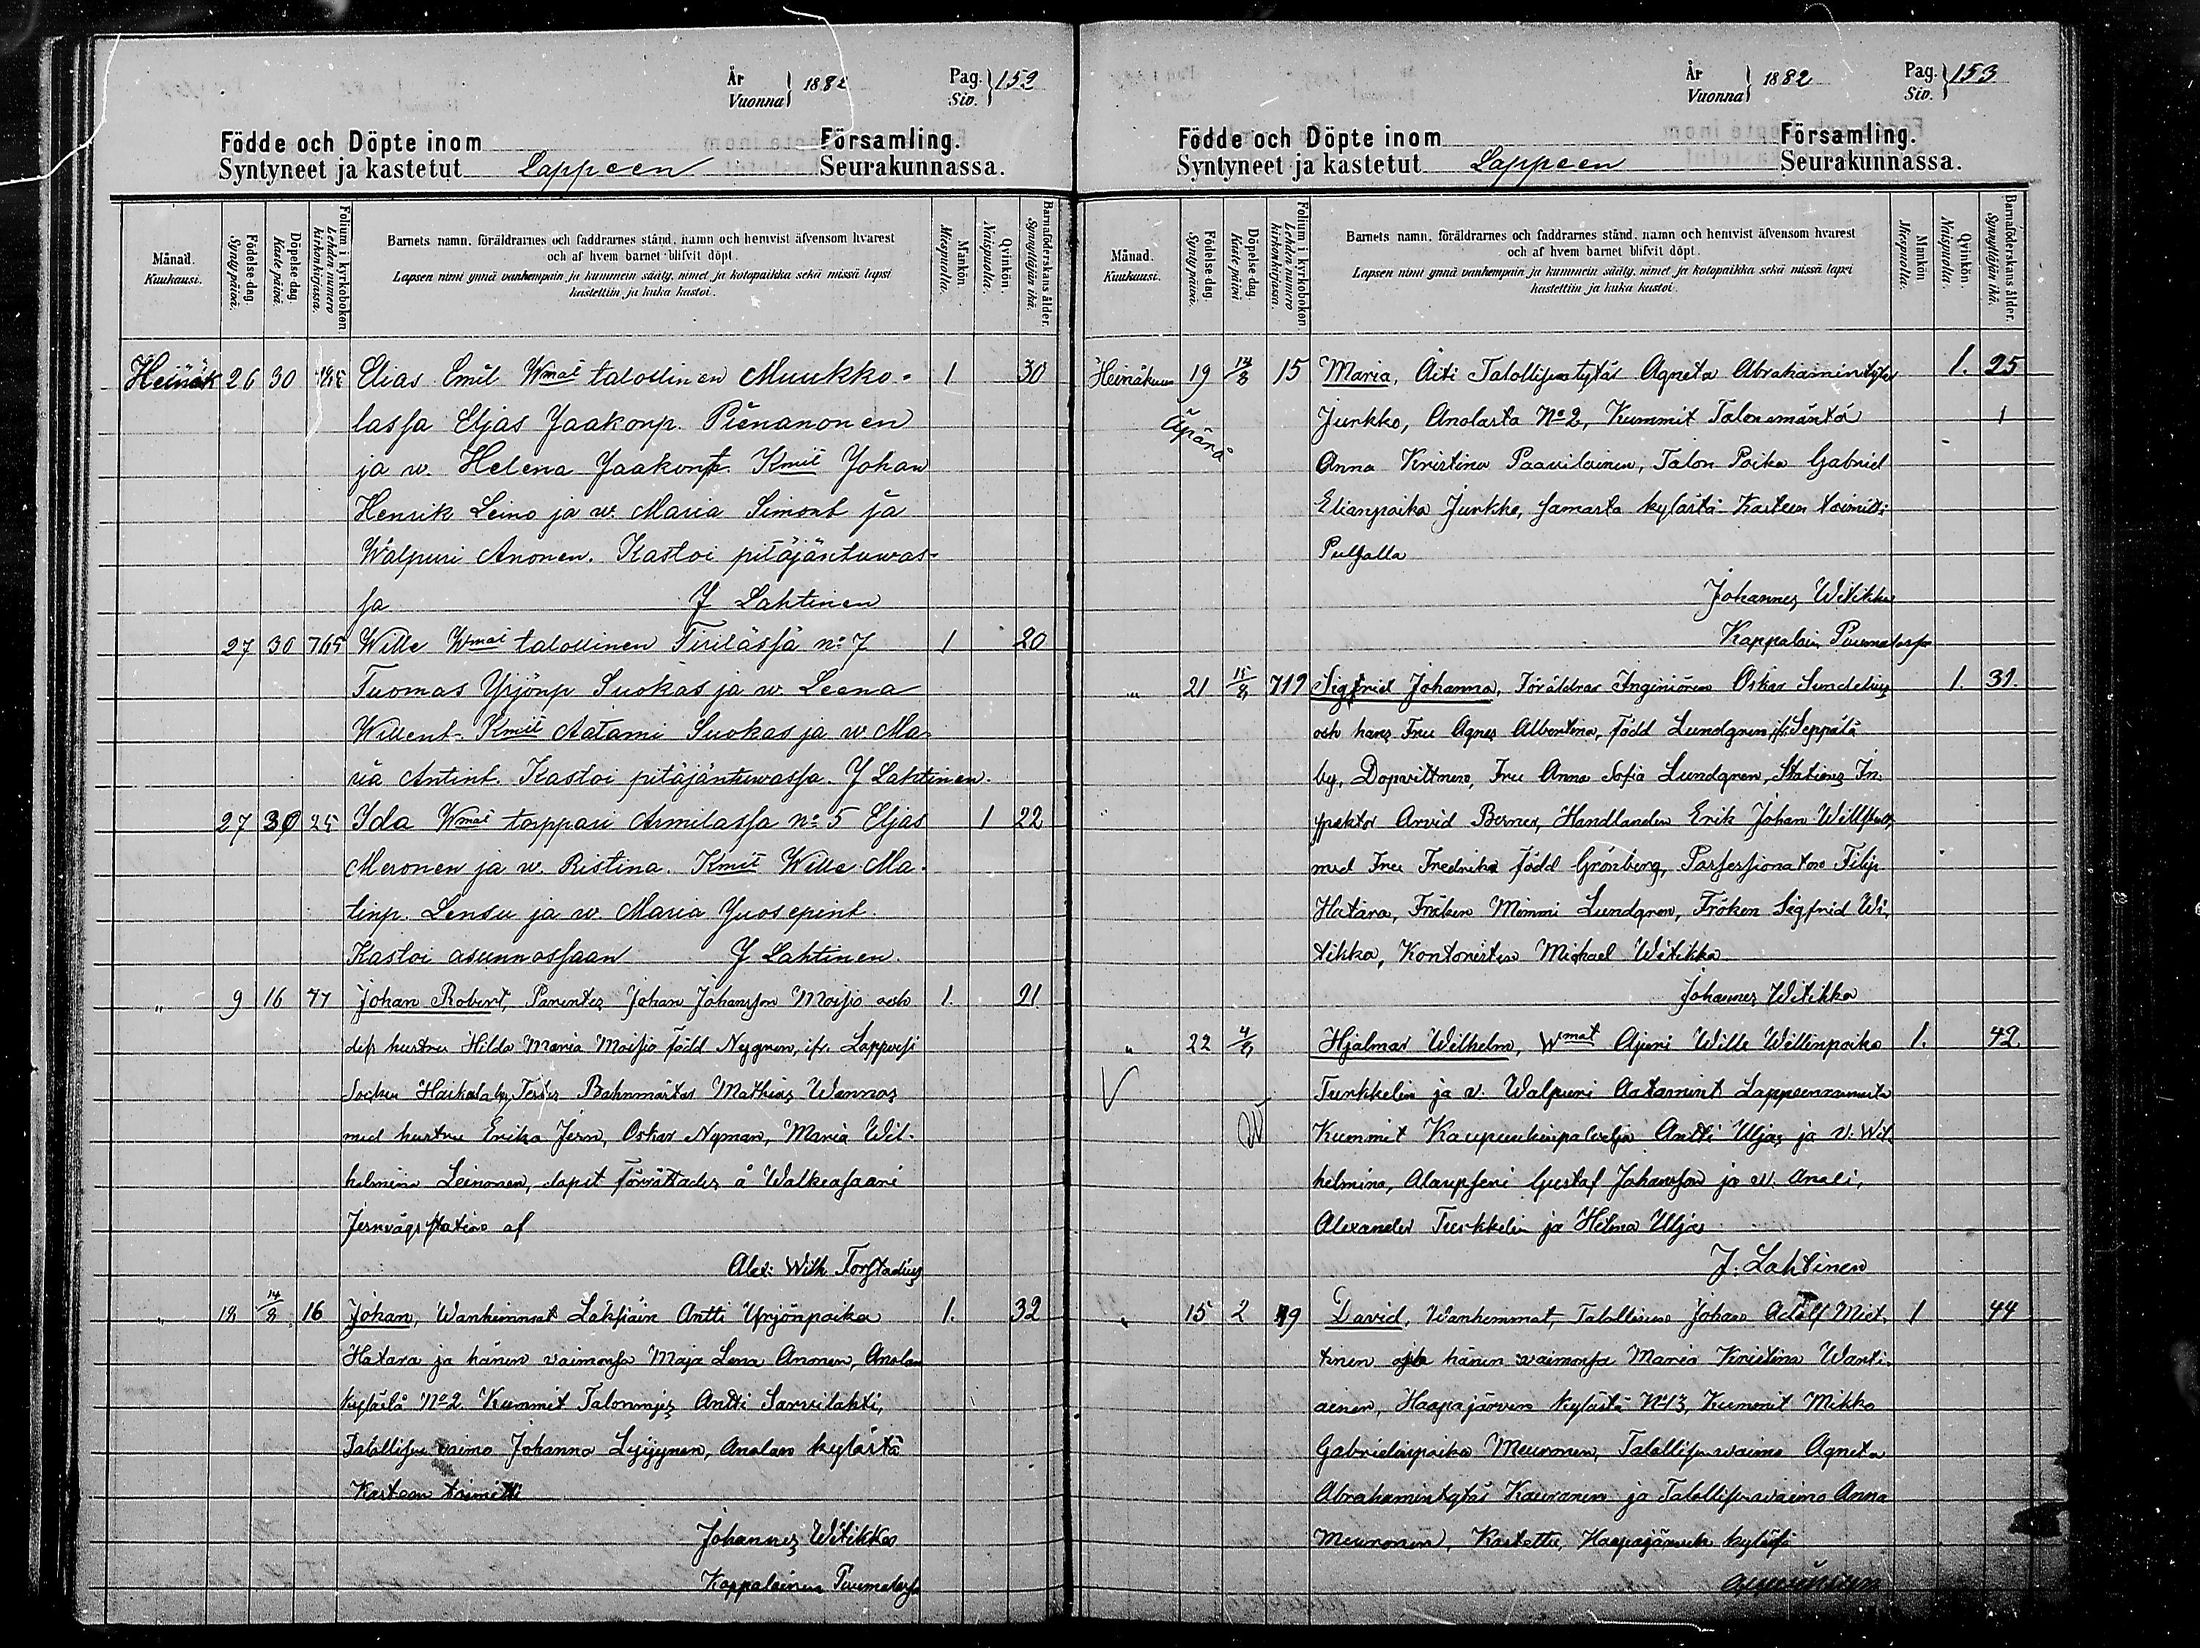 År
Vuonna } 1882 Pag. Siv. } 152
Födde och Döpte inom Församling.
Syntyneet ja kastetut Lappeen Seurakunnassa.
Månad. Kuukausi.
Födelse-dag. Synty päivä.
Döpelse-dag. Kaste päivä.
Folium i kyrkoboken. Lehden numero kirkonkirjassa.
Barnets namn, föräldrarnes och faddrarnes stånd, namn och hemvist äfvensom hvarest
och af hvem barnet blifvit döpt.
Lapsen nimi ynnä vanhempain ja kummein sääty, nimet ja kotopaikka sekä missä lapsi
kastettiin ja kuka kastoi.
Mankön. Miespuolia.
Qvinkön. Naispuolia.
Barnaföderskans ålder. Synnyttäjän ikä.
Heinäk 26 30 Elias Emil Wmat talollinen Muukko- 1 30
lassa Eljas Jaakonp. Pienanonen
ja w. Helena Jaakont. Kmit Johan
Henrik Leino ja w. Maria Simont ja
Walpuri Anonen. Kastoi pitäjäntuwas-
sa J Lahtinen
27 30 765 Wille Wmat talollinen Tiriläsſä no 7 1 20
Tuomas Yrjönp Suokas ja w. Leena
Willent. Kmit Aatami Suokas ja w Ma-
ria Antint. Kastoi pitäjäntuwassa. J Lahtinen.
27 30 25 Ida Wmat torppari Armilassa no 5 Eljas 1 22
Meronen ja w. Ristina. Kmit Wille Ma-
tinp. Lensu ja w. Maria Juosepint.
Kastoi asunnossaan J Lahtinen.
" 9 16 77 Johan Robert, Parentes Johan Johansson Moisio och 1. 21
dess hustru Hilda Maria Moisio född Nygren, ifr. Lappvesi
Socken Haikala by, Testes Banmästar Mathias Wannas
med hustru Erika Jern, Oskar Nyman, Maria Wil-
helmina Leinonen, dopet förrättades å Walkeasaari
Jernvägsstation af
Alex. Wilh Forstadius
" 18 14/8 16 Johan, Wanhemmat Läksiäin Antti Yrjönpoika 1. 32
Hatara ja hänen vaimonsa Maja Lena Anonen, Anolan
kylästä No 2. Kummit Talonmies Antti Sarvilahti,
Talollisen vaimo Johanna Lyijynen, Anolan kylästä
Kasteen toimitti
Johannes Witikka
Kappalainen Puumalassa
År
Vuonna } 1882 Pag. Siv. } 153
Födde och Döpte inom Församling.
Syntyneet ja kastetut Lappeen Seurakunnassa.
Månad. Kuukausi.
Födelse-dag. Synty päivä.
Döpelse-dag. Kaste päivä.
Folium i kyrkoboken. Lehden numero kirkonkirjassa.
Barnets namn, föräldrarnes och faddrarnes stånd, namn och hemvist äfvensom hvarest
och af hvem barnet blifvit döpt.
Lapsen nimi ynnä vanhempain ja kummein sääty, nimet ja kotopaikka sekä missä lapsi
kastettiin ja kuka kastoi.
Mankön. Miespuolia.
Qvinkön. Naispuolia.
Barnaföderskans ålder. Synnyttäjän ikä.
Heinäkuu 19 14/8 15 Maria, Äiti Talollisen tytär Agneta Abrahamintytär 1. 25
Äpärä Jurkko, Anolasta No 2, Kummit Talonemäntä 1
Anna Kristina Paavilainen, Talon Poika Gabriel
Elianpoika Jurkko, samasta kylästä. Kasteen toimitti
Pulsalla
Johannes Witikka
Kappalain Puumalassa
" 21 15/8 719 Sigfrid Johanna, Föräldrar Ingeniören Oskar Sundelius 1. 31.
och hans Fru Agnes Albertina, född Lundgren, ifr. Seppälä
by, Dopvittnen, Fru Anna Sofia Lundgren, Stations In-
spektor Arvid Berner, Handlanden Erik Johan
med Fru Fredrika född Grönberg, Possessionaten Filip
Hatara, Fröken Mimmi Lundgren, Fröken Sigfrid Wi-
tikka, Kontoristen Michael Witikka
Johannes Witikka
" 22 4/8 Hjalmar Wilhelm, Wmat Ajuri Wille Willenpoika 1. 42.
V Turkkelin ja v. Walpuri Aatamint Lappeenrannasta
Kummit Kaupunkinpalvelja Antti Uljas ja v. Wil-
helmina, Alaupseri Gustaf Johansson ja v. Anali,
Alexander Turkkelin ja Helma Uljas
J. Lahtinen
" 15 2 19 David, Wanhemmat, Talollinen Johan Adolf Miet- 1 44
tinen ja hänen vaimonsa Maria Kristina Warti-
ainen, Haapajärven kylästä No 13, Kummit Mikko
Gabrielinpoika Meuronen, Talollisen vaimo Agneta
Abrahamintytär Kauranen ja Talollisen vaimo Anna
Meuronen, Kastettu, Haapajärven kylässä